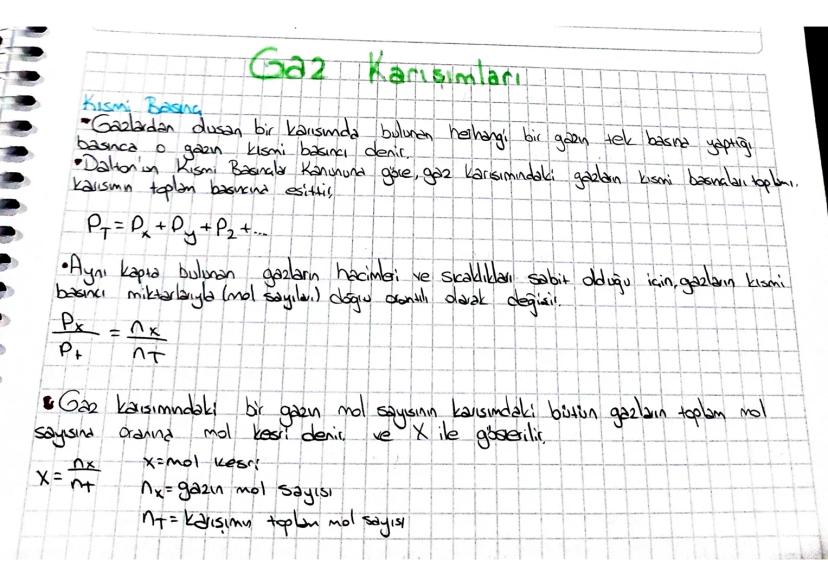 Gaz Karışımları
Kısmi Basınç
• Gazlardan oluşan bir karışımda bulunan herhangi bir gazın tek başına yaptığı
basınca o gazın kısmi basıncı denir.
• Dalton'un Kısmi Basınçlar Kanununa göre, gaz karışımındaki gazların kısmi basınçları toplamı,
karışımın toplam basıncına eşittir.
P_T = P_x + P_y + P_z + ...
• Aynı kapta bulunan gazların hacimleri ve sıcaklıkları sabit olduğu için, gazların kısmi
basıncı miktarlarıyla (mol sayıları) doğru orantılı olarak değişir.
P_x / P_t = n_x / n_T
• Gaz karışımındaki bir gazın mol sayısının karışımdaki bütün gazların toplam mol
sayısına oranına mol kesri denir ve X ile gösterilir.
X = n_x / n_t
x = mol kesri
n_x = gazın mol sayısı
n_T = karışımın toplam mol sayısı